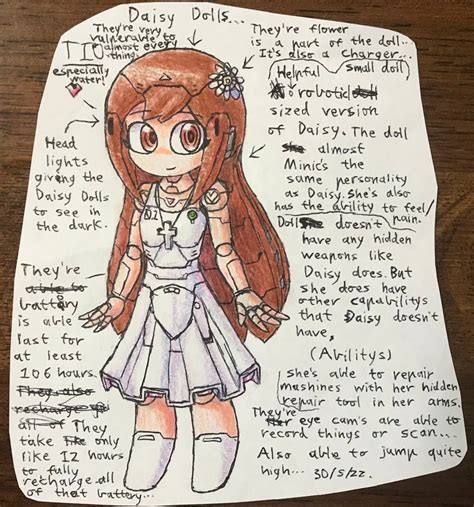 Daisy Dolls...
They're very
vulnerable to
almost every
thing
especially
water!
Head
lights
giving the
Daisy Dolls
to see in
the dark.
They're
battery
is able
last for
at least
106 hours.
They also
recharge
all of They
take like only
like 12 hours
to fully
recharge all
of that battery...
They're flower
is a part of the doll...
It's also a Charger...
(Helpful small doll)
A robotic doll
sized version
of Daisy. The doll
she almost
Minic's the
same personality
as Daisy. She's also
has the ability to feel
pain.
Doll she doesn't
have any hidden
weapons like
Daisy does. But
she does have
other capabilitys
that Daisy doesn't
have,
(Abilitys)
she's able to repair
mushines with her hidden
repair tool in her arms.
They're
her eye cam's are able to
record things or scan...
Also able to jump quite
high... 30/5/22.